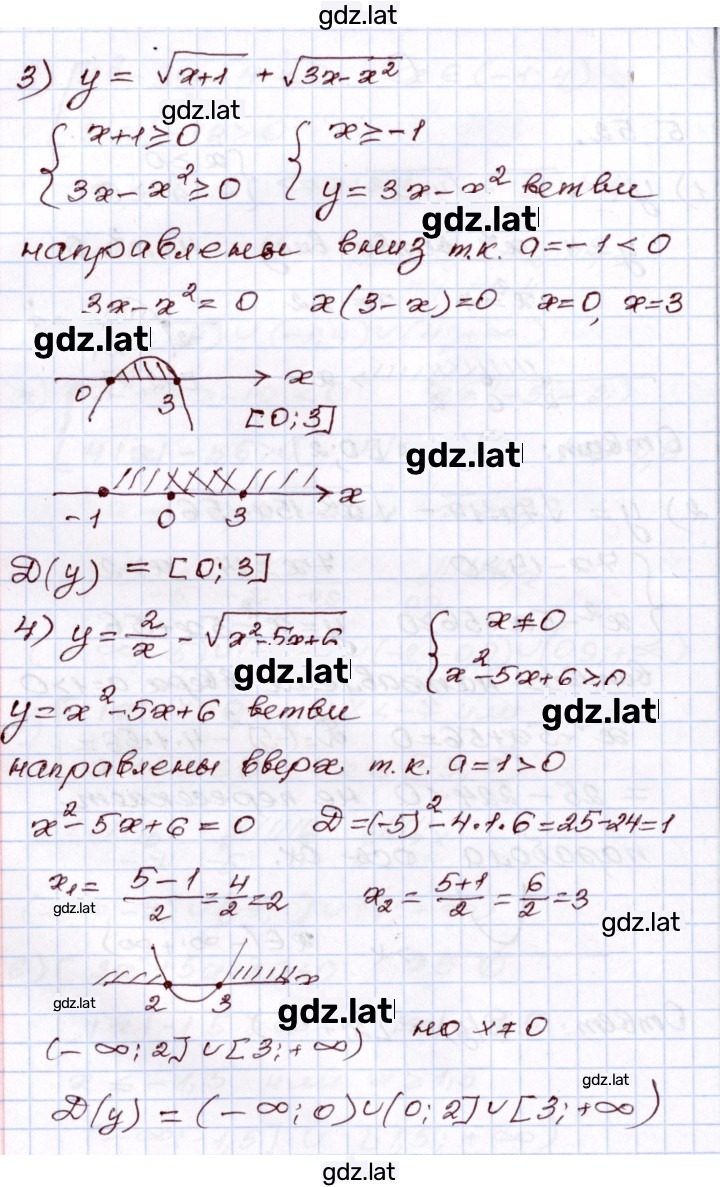 gdz.lat
3) y = √(x+1) + √(3x-x²)
gdz.lat
{ x+1≥0 { x≥-1
3x-x²≥0 y=3x-x² ветви
gdz.lat
направлены вниз т.к. a=-1<0
3x-x²=0 x(3-x)=0 x=0, x=3
gdz.lat
0 3 x
[0;3]
gdz.lat
-1 0 3 x
D(y) = [0;3]
4) y = 2/x - √(x²-5x+6) { x≠0
gdz.lat
x²-5x+6≥0
gdz.lat
y=x²-5x+6 ветви
направлены вверх т.к. a=1>0
x²-5x+6=0 D=(-5)²-4·1·6=25-24=1
x₁= (5-1)/2=4/2=2 x₂=(5+1)/2=6/2=3
gdz.lat
gdz.lat
2 3 x
gdz.lat
gdz.lat
(-∞;2]∪[3;+∞) но x≠0
gdz.lat
D(y)=(-∞;0)∪(0;2]∪[3;+∞)
gdz.lat